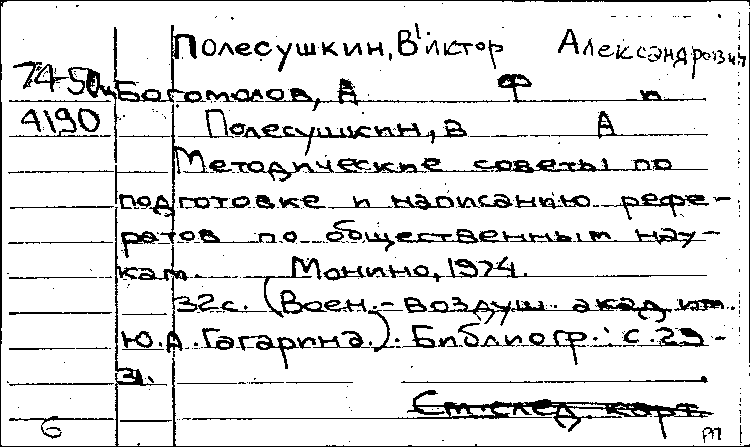 Полесушкин, Виктор Александрович
74-50
Богомолов, А Ф и
4190
Полесушкин, В А
Методические советы по
подготовке и написанию рефе-
ратов по общественным нау-
кам. Монино, 1974.
32с. (Воен.-воздуш. акад им.
Ю.А.Гагарина.). Библиогр.: с.29-
31.
См. след. карт.
6 РП